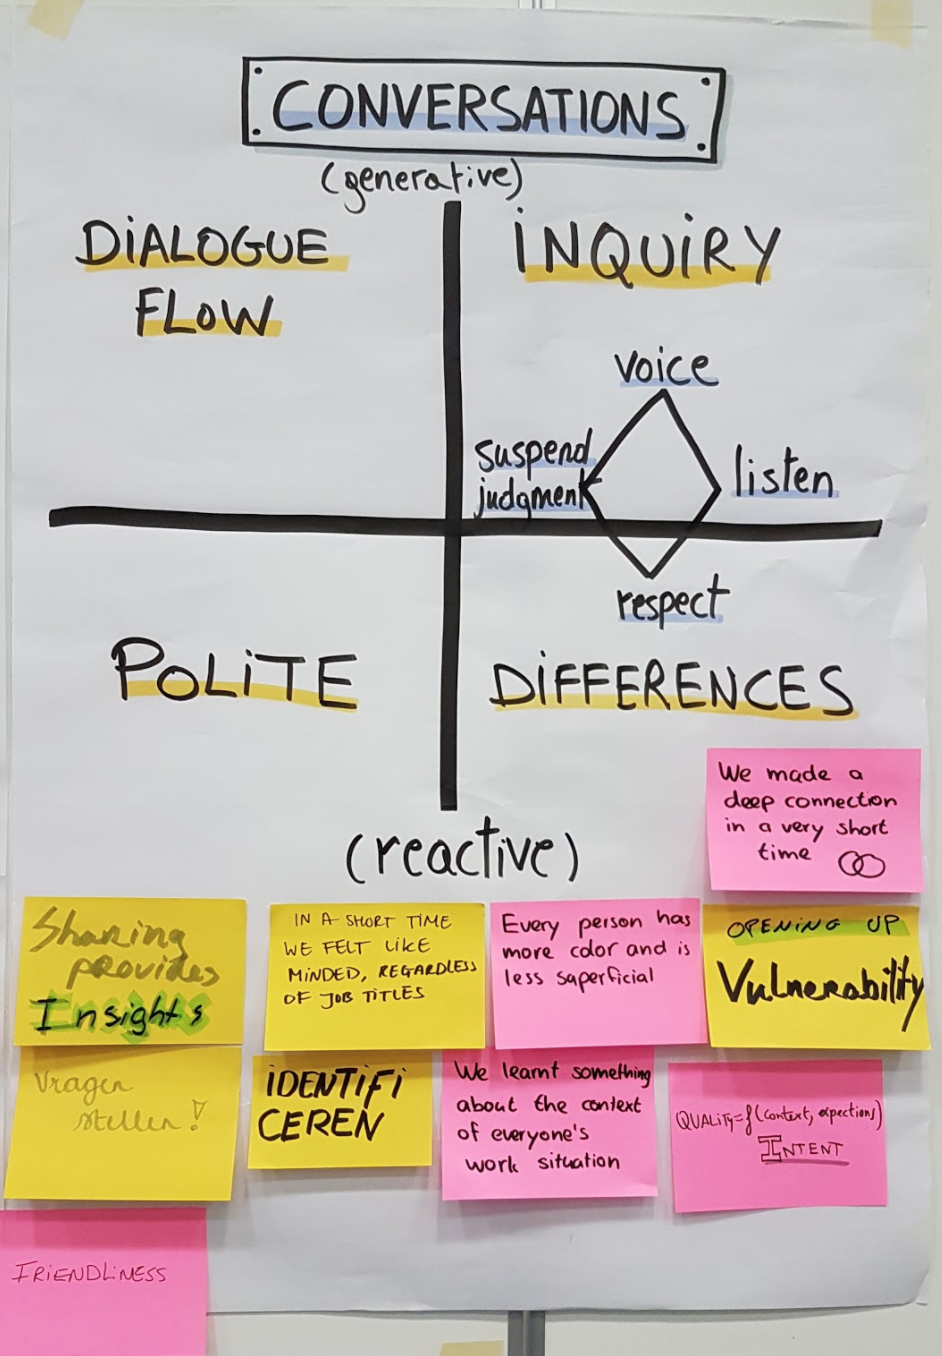 CONVERSATIONS
(generative)
DiALOGUE
FLOW
iNQUiRY
voice
suspend
judgment
listen
respect
POLiTE
DiFFERENCES
(reactive)
We made a
deep connection
in a very short
time
Sharing
provides
Insights
IN A SHORT TIME
WE FELT LIKE
MINDED, REGARDLESS
OF JOB TITLES
Every person has
more color and is
less saperficial
OPENING UP
Vulnerability
Vragen
stellen!
iDENTiFi
CEREN
We learnt something
about the context
of everyone's
work situation
QUALITY=f(context, expections)
INTENT
FRiENDLiNESS